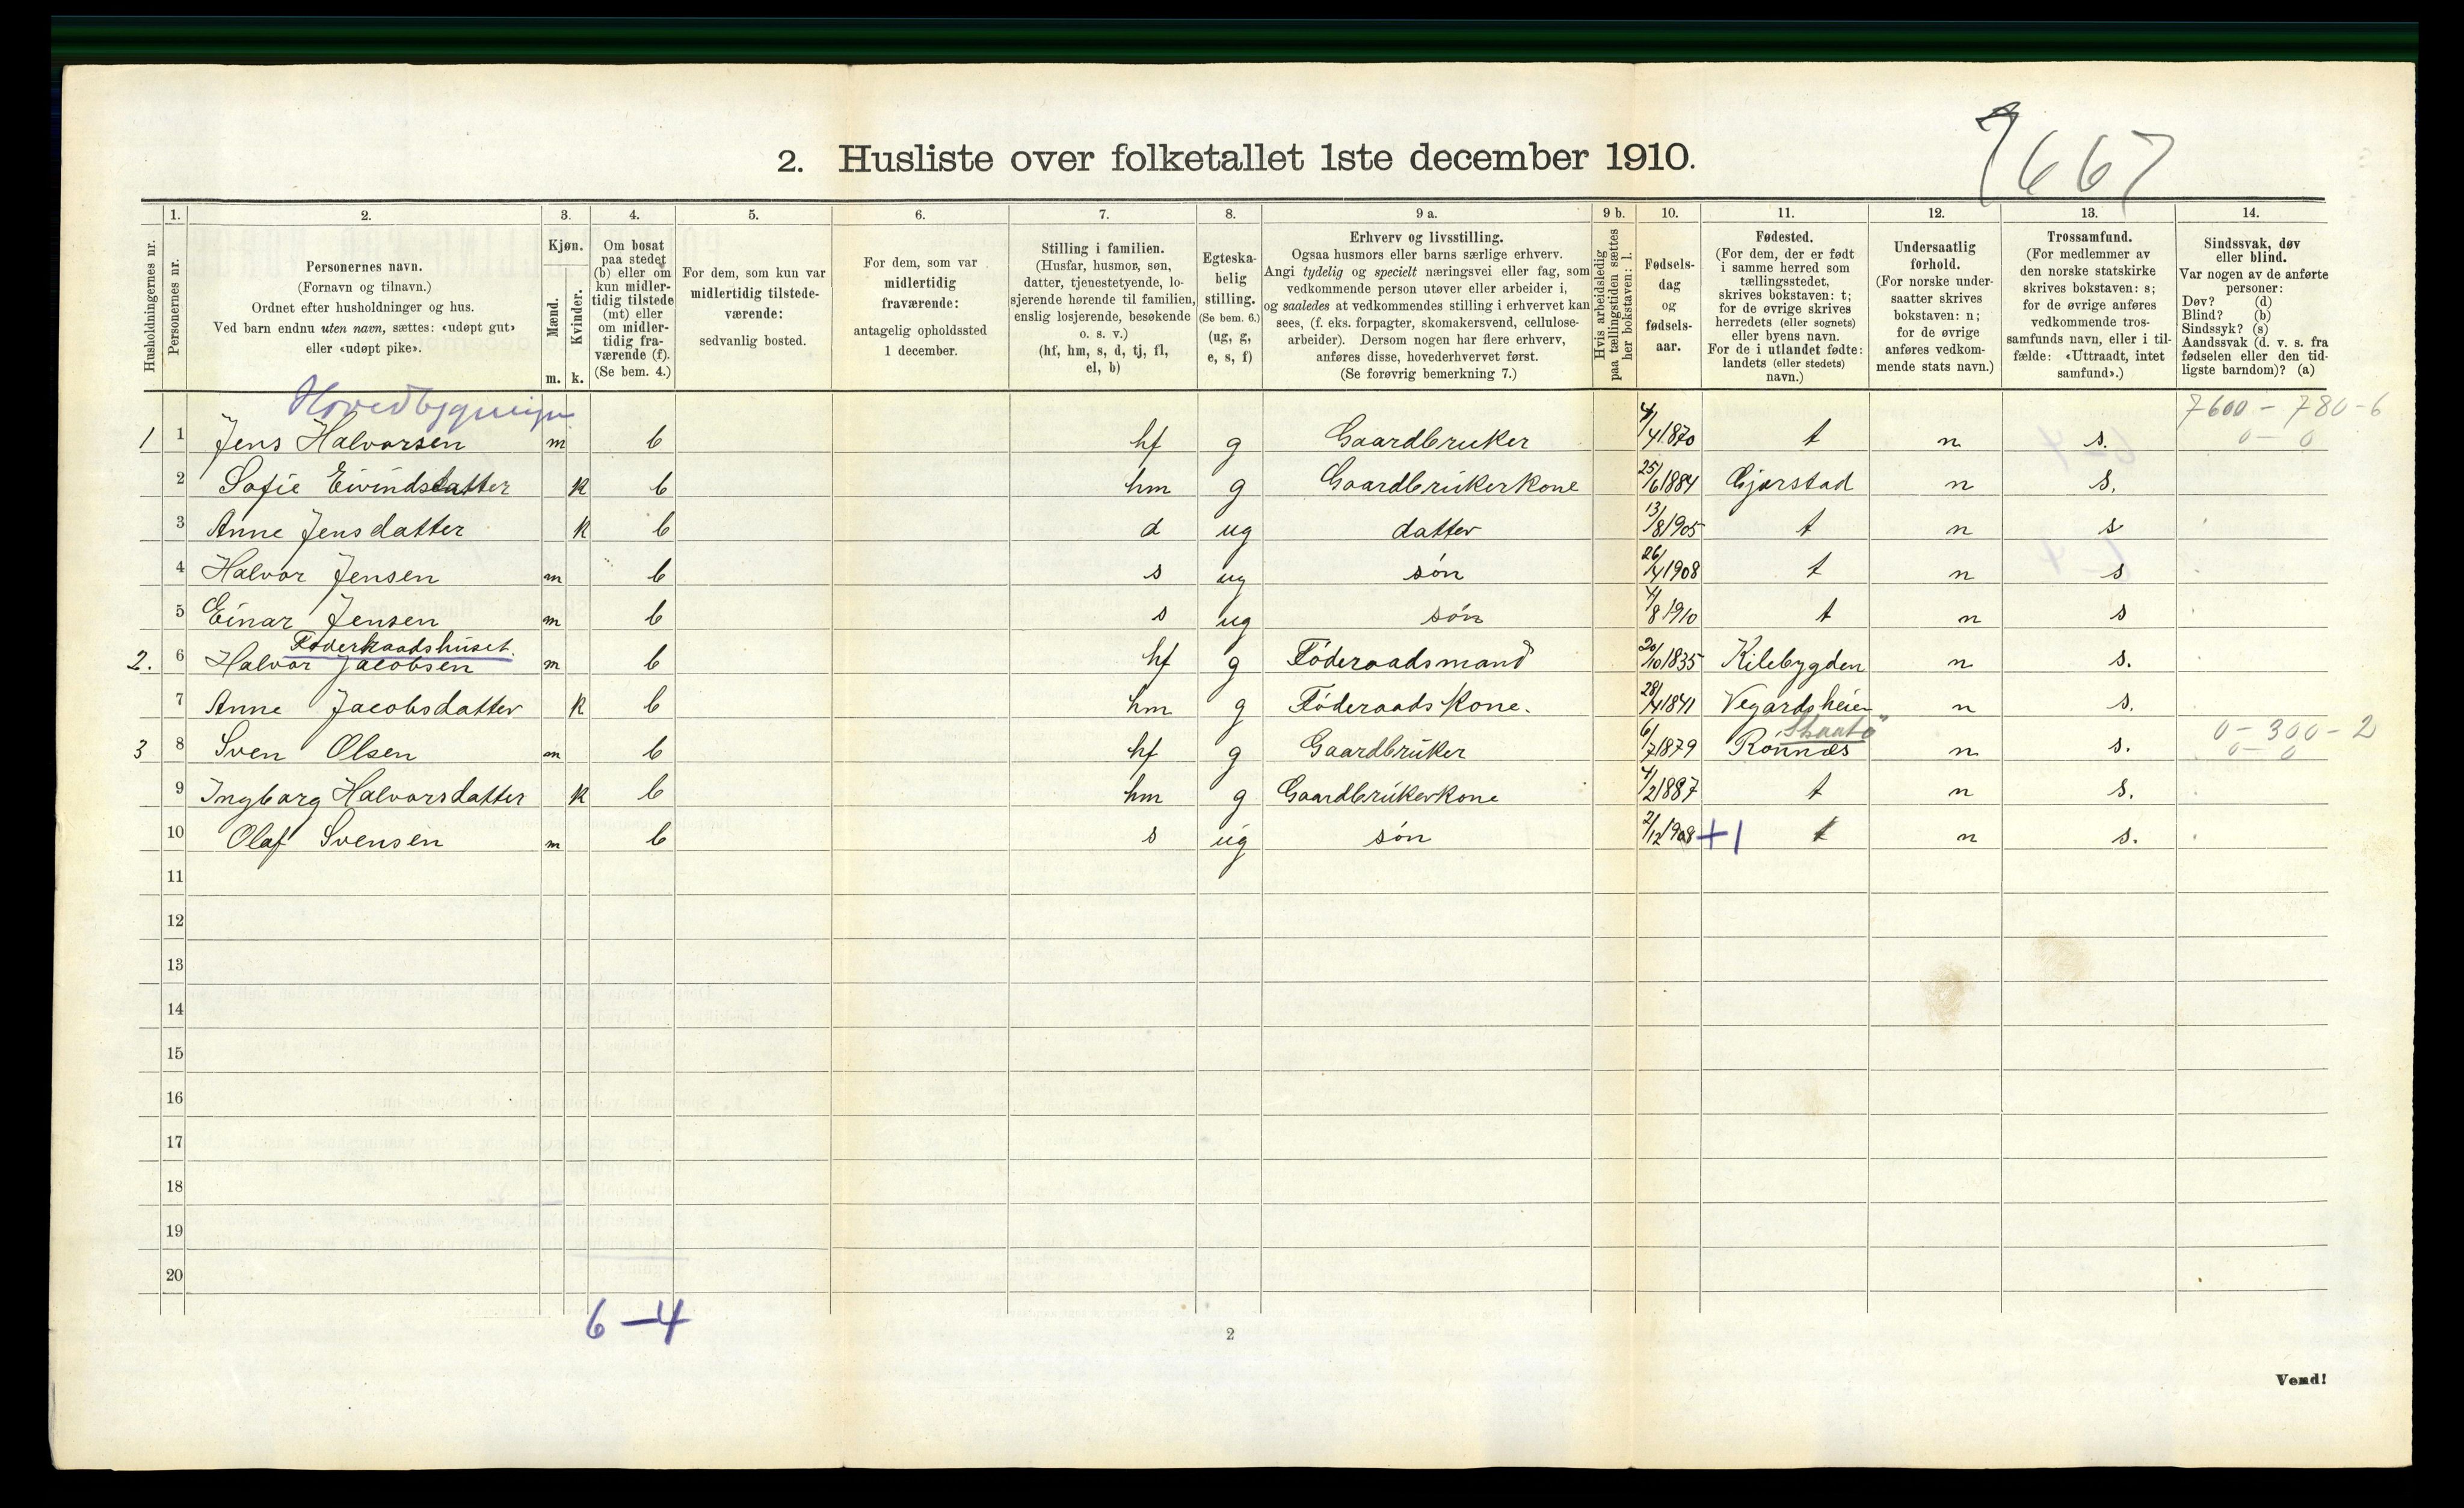 7667
2. Husliste over folketallet 1ste december 1910.
Husholdningernes nr.
1. Personernes nr.
2. Personernes navn.
(Fornavn og tilnavn.)
Ordnet efter husholdninger og hus.
Ved barn endnu uten navn, sættes: «udøpt gut»
eller «udøpt pike».
3. Kjøn.
Mænd. m.
Kvinder. k.
4. Om bosat
paa stedet
(b) eller om
kun midler-
tidig tilstede
(mt) eller
om midler-
tidig fra-
værende (f).
(Se bem. 4.)
5. For dem, som kun var
midlertidig tilstede-
værende:
sedvanlig bosted.
6. For dem, som var
midlertidig
fraværende:
antagelig opholdssted
1 december.
7. Stilling i familien.
(Husfar, husmor, søn,
datter, tjenestetyende, lo-
sjerende hørende til familien,
enslig losjerende, besøkende
o. s. v.)
(hf, hm, s, d, tj, fl,
el, b)
8. Egteska-
belig
stilling.
(Se bem. 6.)
(ug, g,
e, s, f)
9 a. Erhverv og livsstilling.
Ogsaa husmors eller barns særlige erhverv.
Angi tydelig og specielt næringsvei eller fag, som
vedkommende person utøver eller arbeider i,
og saaledes at vedkommendes stilling i erhvervet kan
sees, (f. eks. forpagter, skomakersvend, cellulose-
arbeider). Dersom nogen har flere erhverv,
anføres disse, hovederhvervet først.
(Se forøvrig bemerkning 7.)
9 b. Hvis arbeidsledig
paa tællingstiden sættes
her bokstaven: l.
10. Fødsels-
dag
og
fødsels-
aar.
11. Fødested.
(For dem, der er født
i samme herred som
tællingsstedet,
skrives bokstaven: t;
for de øvrige skrives
herredets (eller sognets)
eller byens navn.
For de i utlandet fødte:
landets (eller stedets)
navn.)
12. Undersaatlig
forhold.
(For norske under-
saatter skrives
bokstaven: n;
for de øvrige
anføres vedkom-
mende stats navn.)
13. Trossamfund.
(For medlemmer av
den norske statskirke
skrives bokstaven: s;
for de øvrige anføres
vedkommende tros-
samfunds navn, eller i til-
fælde: «Uttraadt, intet
samfund».)
14. Sindssvak, døv
eller blind.
Var nogen av de anførte
personer:
Døv? (d)
Blind? (b)
Sindssyk? (s)
Aandssvak (d. v. s. fra
fødselen eller den tid-
ligste barndom)? (a)
Hovedbygningen
7600 - 780 - 6
0 - 0
1 1 Jens Halvorsen m b hf g Gaardbruker 4/4 1870 t n s.
2 Sofie Eivindsdatter k b hm g Gaardbrukerkone 25/6 1884 Gjerstad n s.
3 Anne Jensdatter k b d ug datter 13/8 1905 t n s
4 Halvor Jensen m b s ug søn 26/4 1908 t n s
5 Einar Jensen m b s ug søn 4/8 1910 t n s
Føderaadshuset.
2. 6 Halvor Jacobsen m b hf g Føderaadsmand 20/10 1835 Kilebygden n s.
7 Anne Jacobsdatter k b hm g Føderaadskone. 28/4 1841 Vegardsheien n s.
Skaatø
0 - 300 - 2
0 - 0
3 8 Sven Olsen m b hf g Gaardbruker 6/7 1879 Rønnæs n s.
9 Ingborg Halvorsdatter k b hm g Gaardbrukerkone 4/2 1887 t n s.
10 Olaf Svensen m b s ug søn 2/12 1908 +1 t n s.
11
12
13
14
15
16
17
18
19
20
6 - 4
2
Vend!